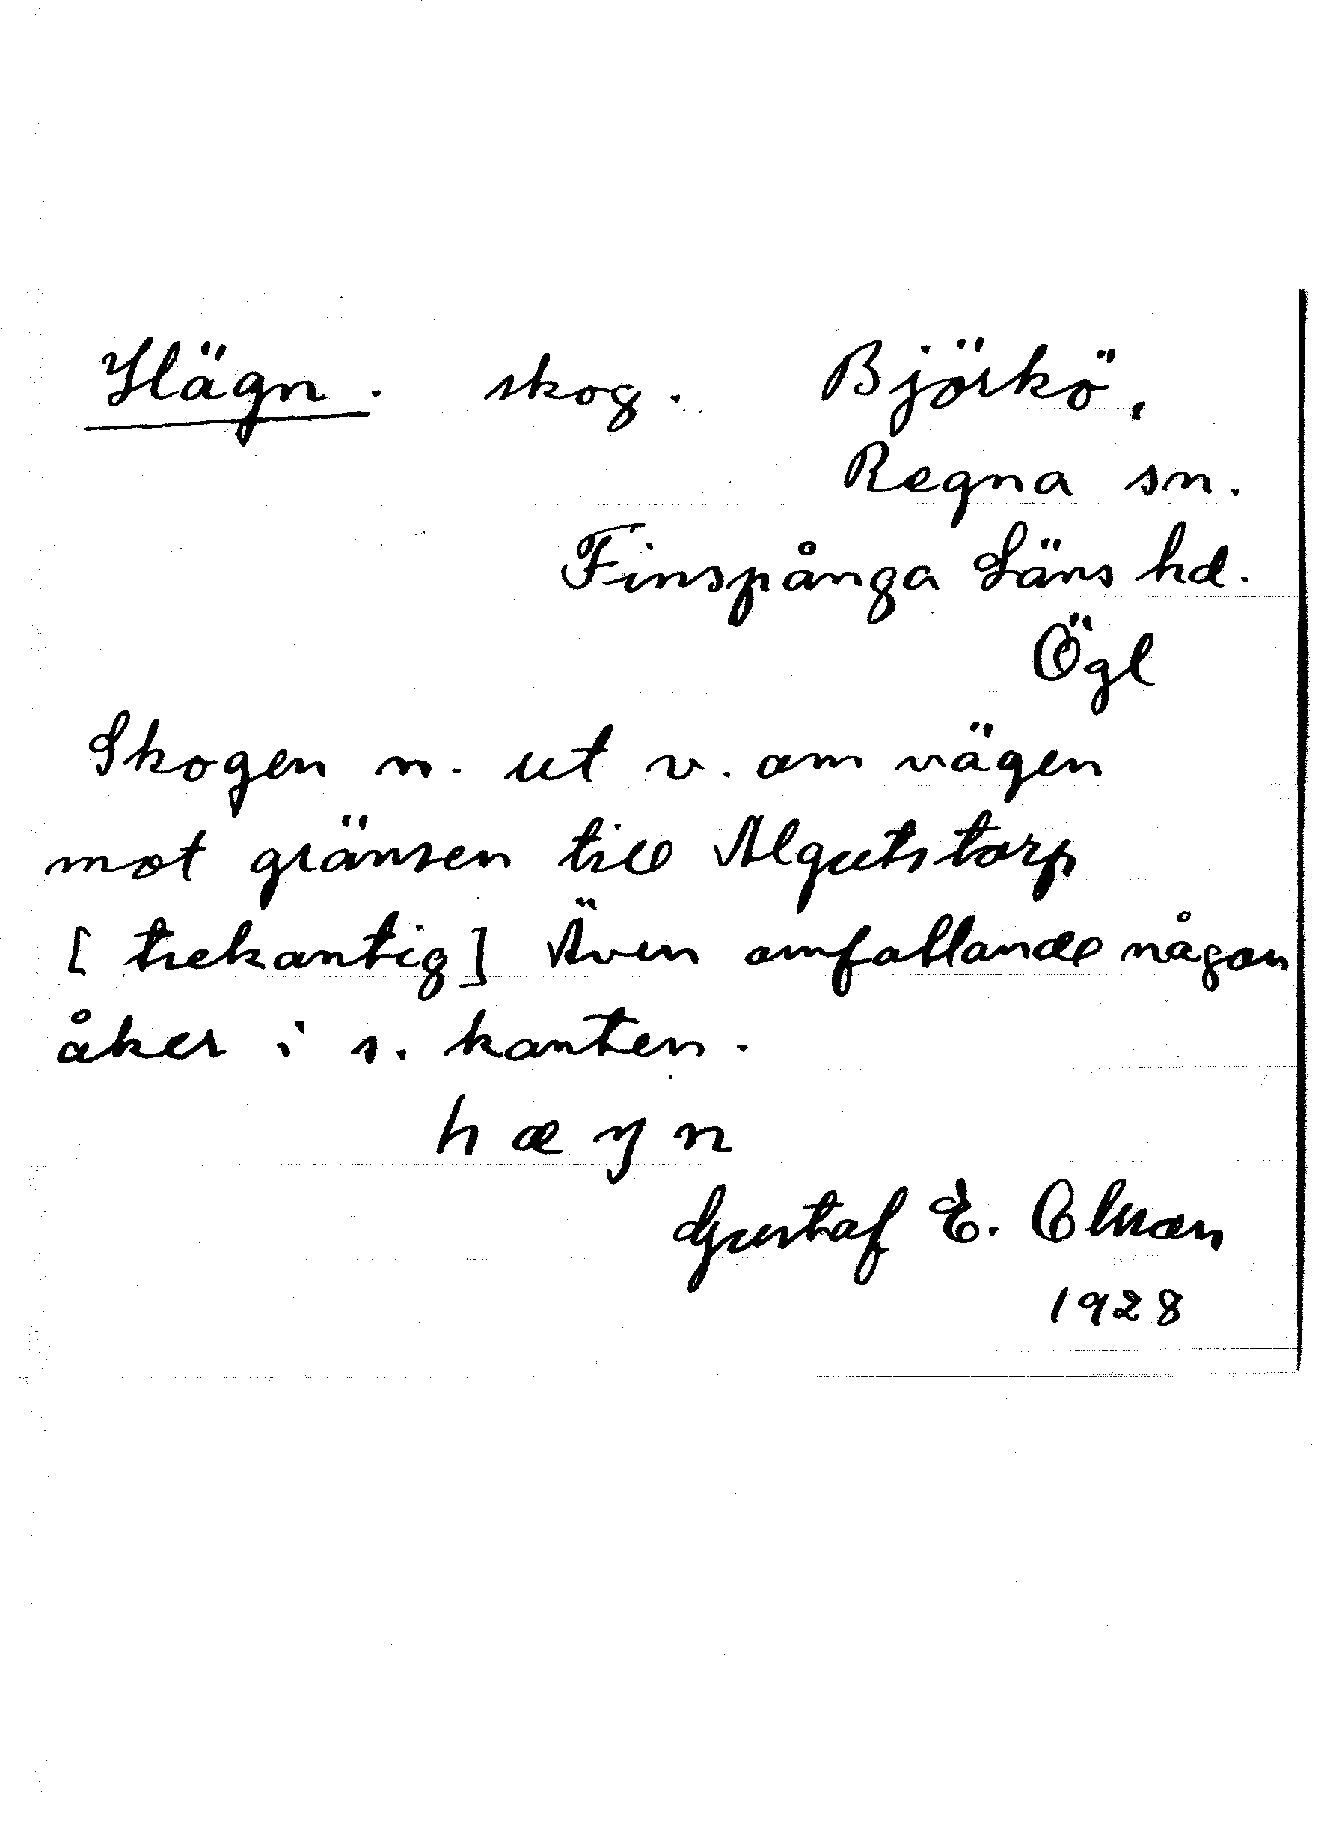 Hägn. skog. Björkö,
Regna sn.
Finspånga Läns hd.
Ögl
Skogen n. ut v. om vägen
mot gränsen till Algutstorp
[trekantig] Även omfattande någon
åker i s. kanten.
hæŋn
Gustaf E. Olsson
1928